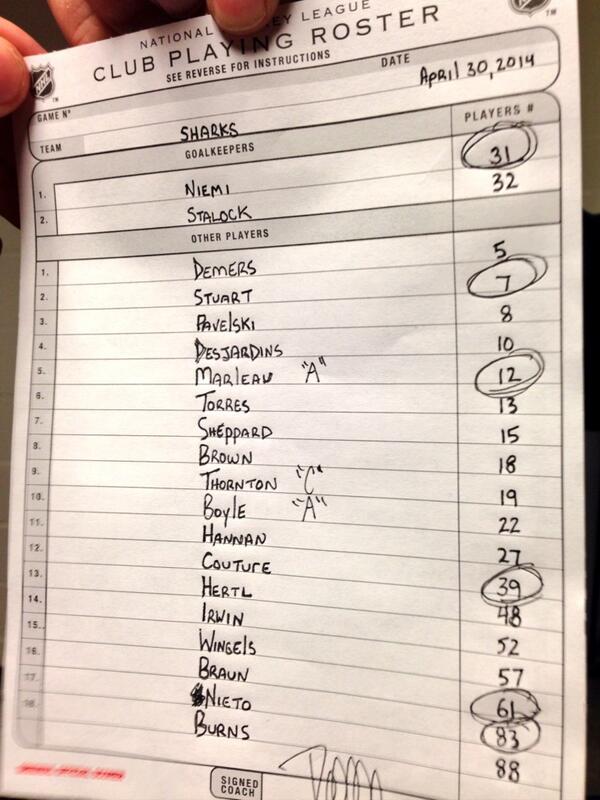 NATIONAL LEAGUE
CLUB PLAYING ROSTER
SEE REVERSE FOR INSTRUCTIONS
GAME Nº
DATE APRIL 30, 2014
TEAM SHARKS
GOALKEEPERS PLAYERS #
1. NIEMI 31
2. STALOCK 32
OTHER PLAYERS
1. DEMERS 5
2. STUART 7
3. PAVELSKI 8
4. DESJARDINS 10
5. MARLEAU "A" 12
6. TORRES 13
7. SHEPPARD 15
8. BROWN 18
9. THORNTON "C" 19
10. BOYLE "A" 22
11. HANNAN 27
12. COUTURE 39
13. HERTL 48
14. IRWIN 52
15. WINGELS 57
16. BRAUN 61
17. NIETO 83
18. BURNS 88
SIGNED
COACH